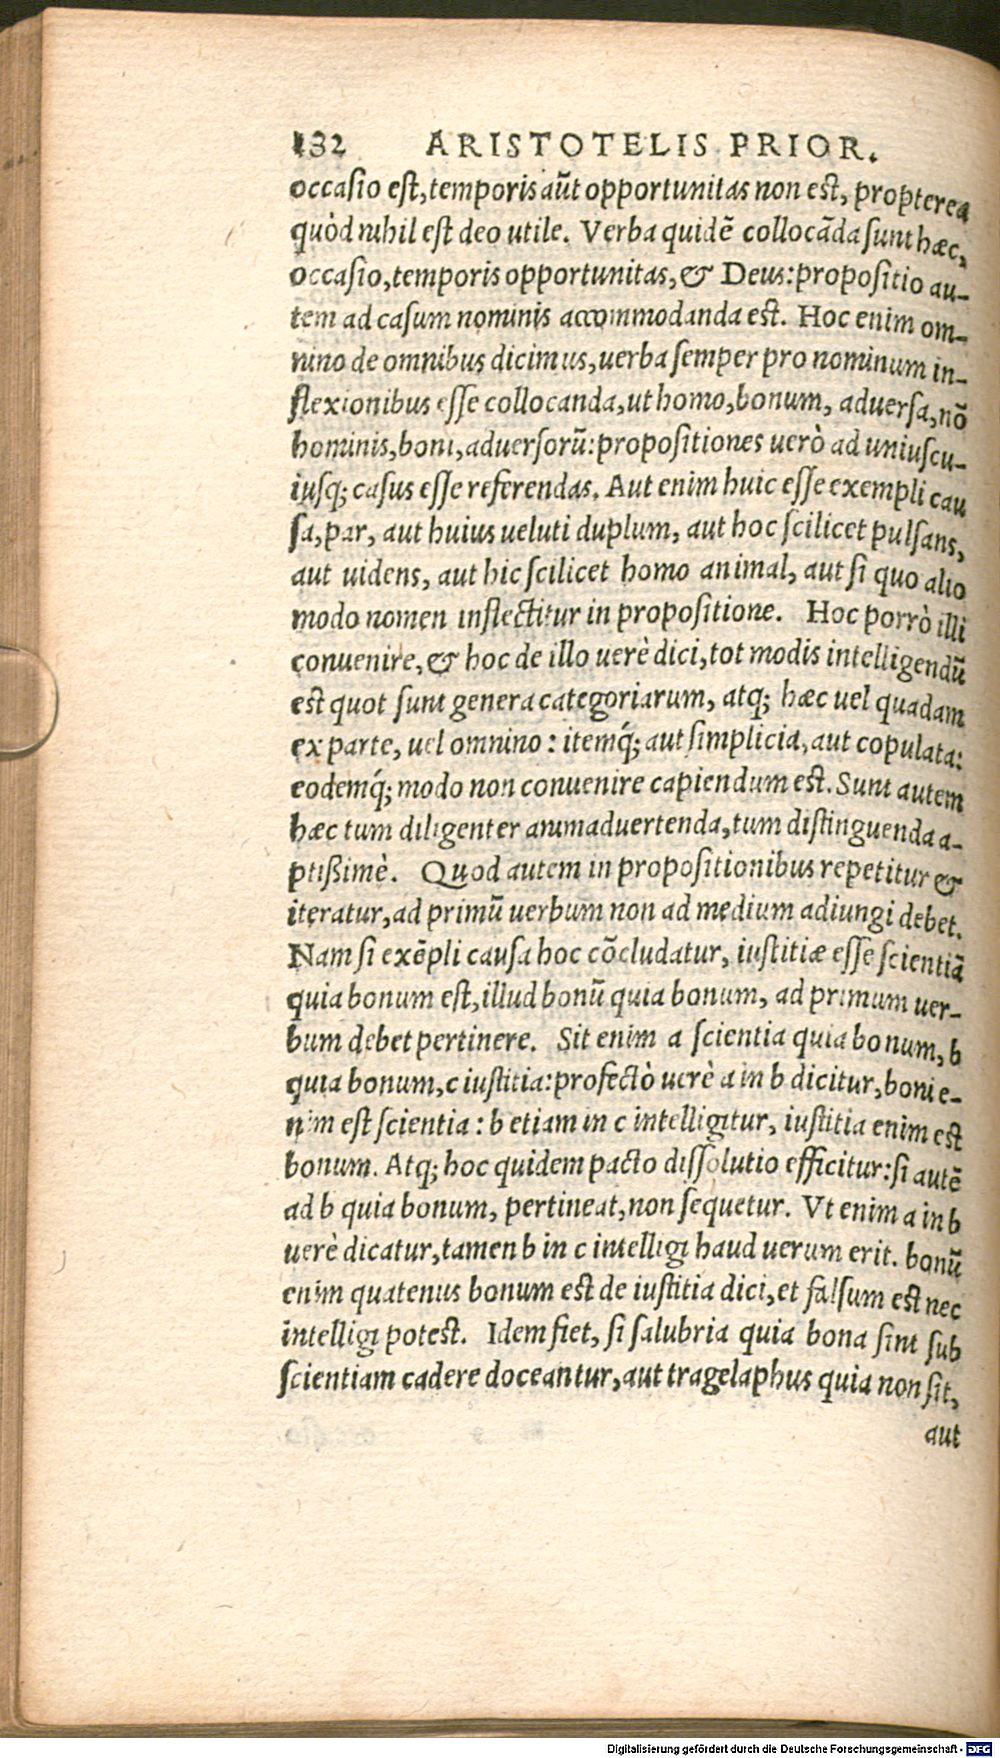 132 ARISTOTELIS PRIOR.
occasio est, temporis aūt opportunitas non est, propterea
quòd nihil est deo utile. Verba quidē collocāda sunt hæc,
occasio, temporis opportunitas, & Deus: propositio au-
tem ad casum nominis accommodanda est. Hoc enim om-
nino de omnibus dicimus, uerba semper pro nominum in-
flexionibus esse collocanda, ut homo, bonum, aduersa, nō
hominis, boni, aduersorū: propositiones uerò ad uniuscu-
iusq; casus esse referendas. Aut enim huic esse exempli cau
sa, par, aut huius ueluti duplum, aut hoc scilicet pulsans,
aut uidens, aut hic scilicet homo animal, aut si quo alio
modo nomen inflectitur in propositione. Hoc porrò illi
conuenire, & hoc de illo uerè dici, tot modis intelligendū
est quot sunt genera categoriarum, atq; hæc uel quadam
ex parte, uel omnino: itemq́; aut simplicia, aut copulata:
eodemq́; modo non conuenire capiendum est. Sunt autem
hæc tum diligenter animaduertenda, tum distinguenda a-
ptißimè. Quod autem in propositionibus repetitur &
iteratur, ad primū uerbum non ad medium adiungi debet.
Nam si exēpli causa hoc cōcludatur, iustitiæ esse scientiā
quia bonum est, illud bonū quia bonum, ad primum uer-
bum debet pertinere. Sit enim a scientia quia bonum, b
quia bonum, c iustitia: profectò uerè a in b dicitur, boni e-
nim est scientia: b etiam in c intelligitur, iustitia enim est
bonum. Atq; hoc quidem pacto dissolutio efficitur: si autē
ad b quia bonum, pertineat, non sequetur. Vt enim a in b
uerè dicatur, tamen b in c intelligi haud uerum erit. bonū
enim quatenus bonum est de iustitia dici, et falsum est nec
intelligi potest. Idem fiet, si salubria quia bona sint sub
scientiam cadere doceantur, aut tragelaphus quia non sit,
aut
Digitalisierung gefördert durch die Deutsche Forschungsgemeinschaft - DFG